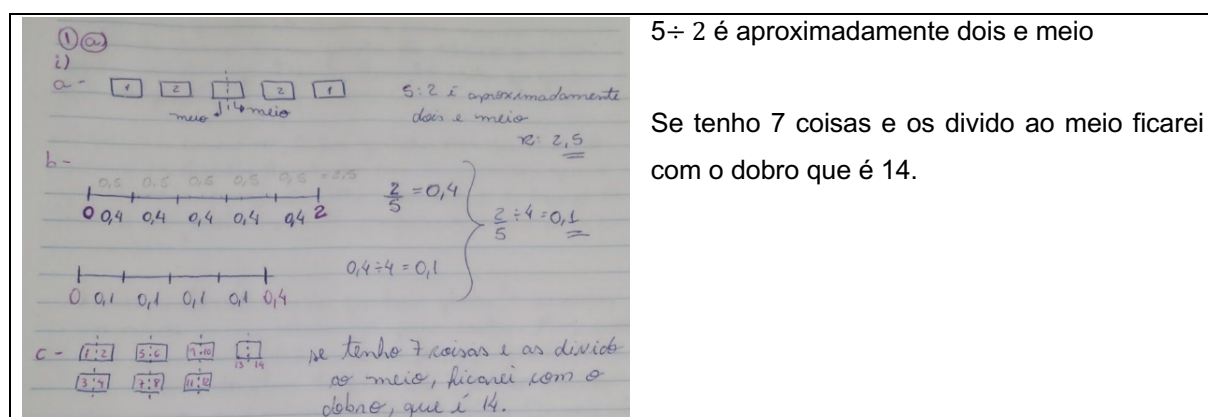 ① ⓐ
i)
a - 1 2 2 1
meio meio
5:2 é aproximadamente
dois e meio
R: 2,5
b -
0,5 0,5 0,5 0,5 0,5 = 2,5
0 0,4 0,4 0,4 0,4 0,4 2
2/5 = 0,4
0,4÷4 = 0,1
2/5 ÷4 = 0,1
0 0,1 0,1 0,1 0,1 0,4
c - 1 2 5 6 9 10 13 14
3 4 7 8 11 12
se tenho 7 coisas e as divido
ao meio, ficarei com o
dobro, que é 14.
5÷ 2 é aproximadamente dois e meio
Se tenho 7 coisas e os divido ao meio ficarei
com o dobro que é 14.